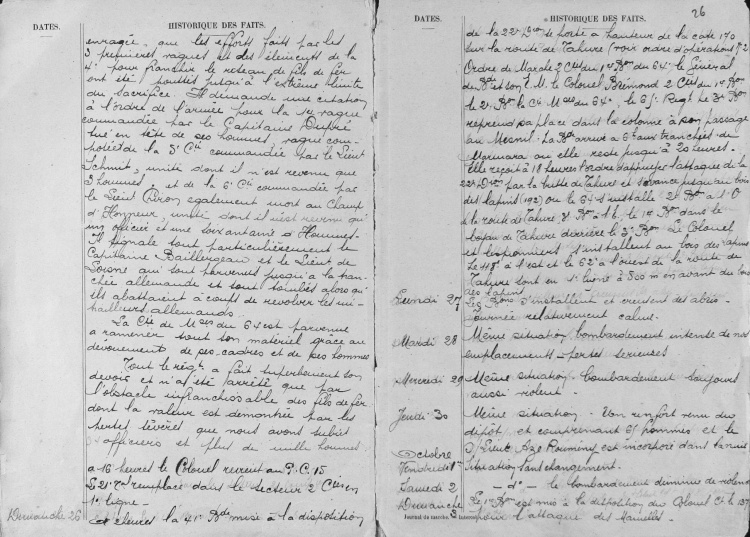 DATES.
HISTORIQUE DES FAITS.
enragée, que les efforts faits par les
3 premières vagues et des éléments de la
4e pour franchir le réseau de fils de fer
ont été poussés jusqu'à l'extrême limite
du sacrifice. Il demande une citation
à l'ordre de l'armée pour la 1e vague
commandée par le Capitaine Dupré
tué en tête de ses hommes, vague com-
posée de la 5e Cie commandée par le Lieut
Schmit, unité dont il n'est revenu que
3 hommes, et de la 6e Cie commandée par
le Lieut Biron également mort au Champ
d'Honneur, unité dont il n'est revenu qu'
un officier et une soixantaine d'Hommes.
Il signale tout particulièrement le
Capitaine Baillergeau et le Lieut de
Soisne qui sont parvenus jusqu'à la tran-
chée allemande et sont tombés alors qu'
ils abattaient à coups de revolver les mi-
trailleurs allemands.
La Cie de Mses du 64 est parvenue
à ramener tout son matériel grâce au
dévouement de ses cadres et de ses hommes
Tout le régt a fait superbement son
devoir et n'a été arrêté que par
l'obstacle infranchissable des fils de fer
dont la valeur est démontrée par les
pertes sévères que nous avons subies
officiers et plus de mille hommes
à 16 heures le Colonel revient au P.C. 15
Le 21e remplace dans le secteur 2 Cies en
1e ligne
Dimanche 26
heures la 41e Bde mise à la disposition
26
DATES.
HISTORIQUE DES FAITS.
de la 22e Don se porte à hauteur de la cote 170
sur la route de Tahure (voir ordre d'opérations no 2
Ordre de Marche 2 Cies du 1er Bon du 64e le Général
de Bde et son E.M. le Colonel Brémond 2 Cies du 1er Bon
le 2e Bon la Cie Mses du 64e, le 65e Regt. Le 3e Bon
reprend sa place dans la colonne à son passage
au Mesnil. La Bde arrive à 6h aux tranchées de
Marmara où elle reste jusqu'à 20 heures.
Elle reçoit à 18 heures l'ordre d'appuyer l'attaque de la
22e Don par la butte de Tahure et s'avance jusqu'au bois
des lapins (192) où le 64 s'installe 2e Bon à l'O
de la route de Tahure, 3e Bon à l'E, le 1er Bon dans le
boyau de Tahure derrière le 3e Bon Le Colonel
et les pionniers s'installent au bois des lapins
Le 118e à l'est et le 62e à l'ouest de la route de
Tahure sont en 1e ligne à 800 m en avant du bois
des lapins
Lundi 27
Les Bons s'installent et creusent des abris.
Journée relativement calme.
Mardi 28
Même situation, bombardement intense de nos
emplacements - pertes sérieuses
Mercredi 29
Même situation. bombardement toujours
aussi violent.
Jeudi 30
Même situation - Un renfort venu du
dépôt et comprenant 61 hommes et le
S/Lieut Aze Rouminy est incorporé dans la nuit
Octobre
Vendredi 1er
Situation sans changement.
Samedi 2
- do - le bombardement diminue de violence
Dimanche
3
Le 1er Bon est mis à la disposition du Colonel Ct le 137
pour l'attaque des Mamelles.
Journal du marche.